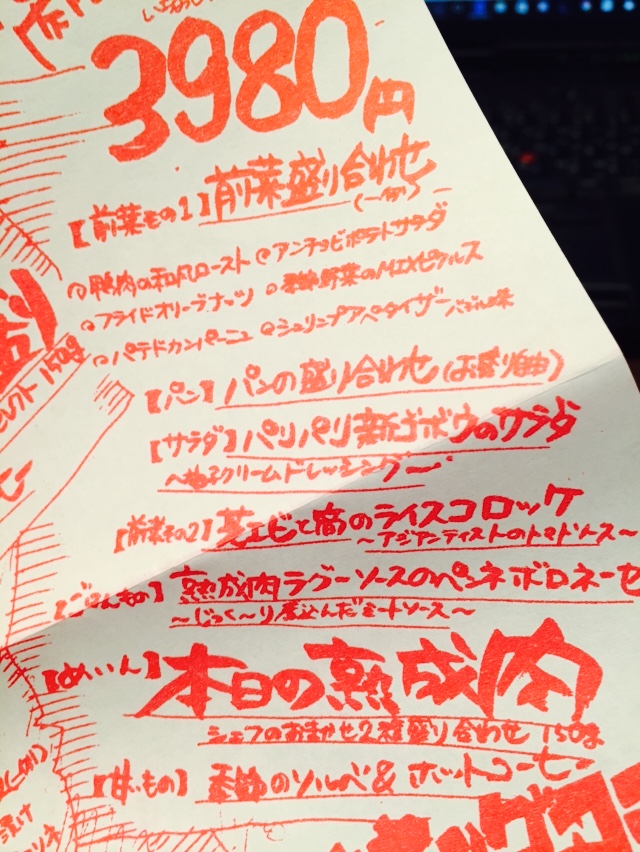 3980円
【前菜その1】前菜盛り合わせ
(一例)
鴨肉の和風ロースト アンチョビポテトサラダ
フライドオリーブナッツ 季節野菜のMIXピクルス
パテドカンパーニュ シュリンプアペタイザー バジル味
【パン】パンの盛り合わせ(お替り自由)
【サラダ】パリパリ新ゴボウのサラダ
〜柚子クリームドレッシング〜
【前菜その2】芝エビと筍のライスコロッケ
〜アジアンテイストのトマトソース〜
【ごはんもの】熟成肉ラグーソースのペンネボロネーゼ
〜じっく〜り煮込んだミートソース〜
【めいん】本日の熟成肉
シェフのおまかせ2種盛り合わせ 150g
【甘いもの】季節のソルベ& ホットコーヒー
150g